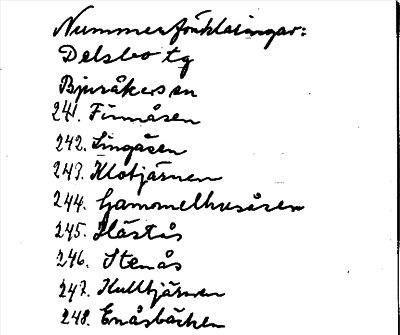 Nummerförklaringar:
Delsbo tg
Bjuråkers sn
241. Finnåsen
242. Lingåsen
243. Klotjärnen
244. Gammelhusåsen
245. Håstås
246. Stenås
247. Kulltjärnen
248. Enåsbäcken